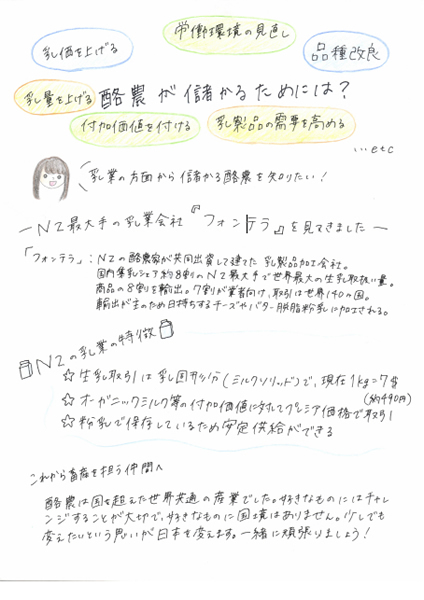 労働環境の見直し
乳価を上げる
品種改良
乳量を上げる
酪農が儲かるためには?
付加価値を付ける
乳製品の需要を高める
…etc
乳業の方面から儲かる酪農を知りたい!
ーNZ最大手の乳業会社『フォンテラ』を見てきましたー
「フォンテラ」:NZの酪農家が共同出資して建てた乳製品加工会社。
国内集乳シェア約8割のNZ最大手で世界最大の生乳取扱い量。
商品の8割を輸出。7割が業者向け、取引は世界140ヵ国。
輸出が主のため日持ちするチーズやバター脱脂粉乳に加工される。
NZの乳業の特徴
☆生乳取引は乳固形分(ミルクソリッド)で、現在1kg=7$
(約490円)
☆オーガニックミルク等の付加価値に対してプレミア価格で取引
☆粉乳で保存しているため安定供給ができる
これから畜産を担う仲間へ
酪農は国を超えた世界共通の産業でした。好きなものにはチャレ
ンジすることが大切で、好きなものに国境はありません。少しでも
変えたいという思いが日本を変えます。一緒に頑張りましょう!